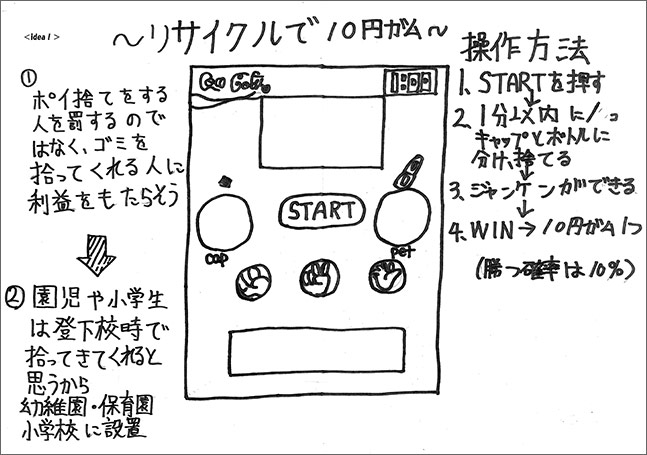 <Idea 1>
～リサイクルで10円ガム～
①
ポイ捨てをする
人を罰するので
はなく、ゴミを
拾ってくれる人に
利益をもたらそう
②園児や小学生
は登下校時で
拾ってきてくれると
思うから
幼稚園・保育園
小学校に設置
1:00
START
cap
pet
操作方法
1、STARTを押す
2、1分以内に1コ
キャップとボトルに
分け、捨てる
3、ジャンケンができる
4、WIN→10円ガム1つ
(勝つ確率は10%)